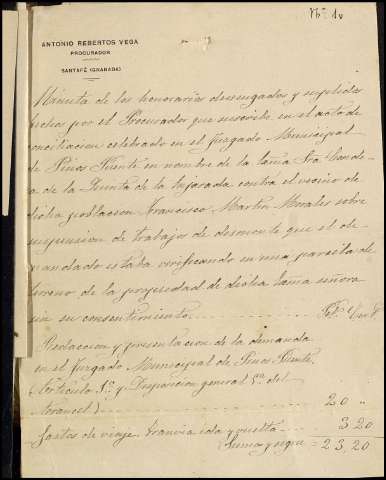 Nº 10
ANTONIO REBERTOS VEGA
PROCURADOR
SANTAFÉ (GRANADA)
Minuta de los honorarios devengados y suplidos
fechos por el Procurador que suscribe en el acto de
conciliacion celebrado en el Juzgado Municipal
de Pinos Puente en nombre de la Excma Sra Conde-
sa de la Puenta de la contra el vecino de
dicha poblacion Francisco Martin Morales sobre
suspension de trabajos de desmonte que el de-
mandado estaba verificando en una parcela de
terreno de la propiedad de dicha Excma señora
sin su consentimiento
Redaccion y presentacion de la demanda
en el Juzgado Municipal de Pinos Puente
(Articulo 1º y Disposicion general 5ª del
Arancel) 20 "
Gastos de viaje tranvia ida y vuelta 3 20
Suma y sigue = 23,20